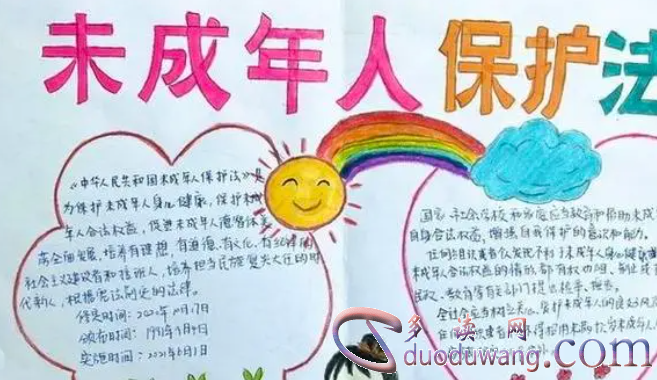 未成年人保护法
《中华人民共和国未成年人保护法》是
为保护未成年人身心健康,保护未成
年人合法权益,促进未成年人德智体美
劳全面发展,培养有理想、有道德、有文化、有纪律的
社会主义建设者和接班人,培养担当民族复兴大任的时
代新人,根据宪法制定的法律。
修订时间:2020年10月17日
颁布时间:1991年9月4日
实施时间:2021年6月1日
国家、社会、学校和家庭应当教育和帮助未成
自身合法权益,增强自我保护的意识和能力。
任何组织或者个人发现不利于未成年人身心健康或
成年人合法权益的情形都有权劝阻、制止或
民政、教育等有关部门提出检举、控告。
全社会应当树立关心、爱护未成年人的良好风
多读网
duoduwang.com